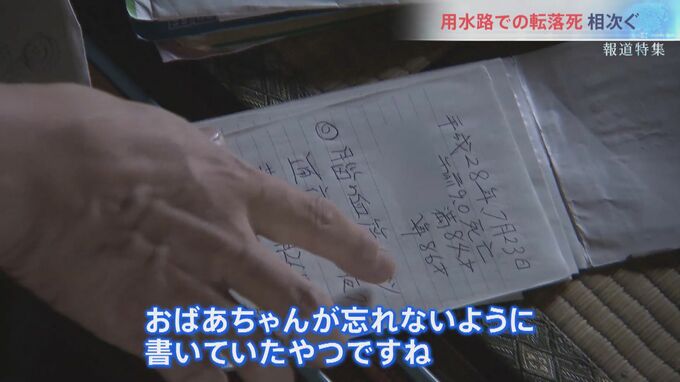 用水路での転落死 相次ぐ
報道特集
平成28年7月23日
9.0 死亡
満84才
享86才
◎脳血管
おばあちゃんが忘れないように
書いていたやつですね